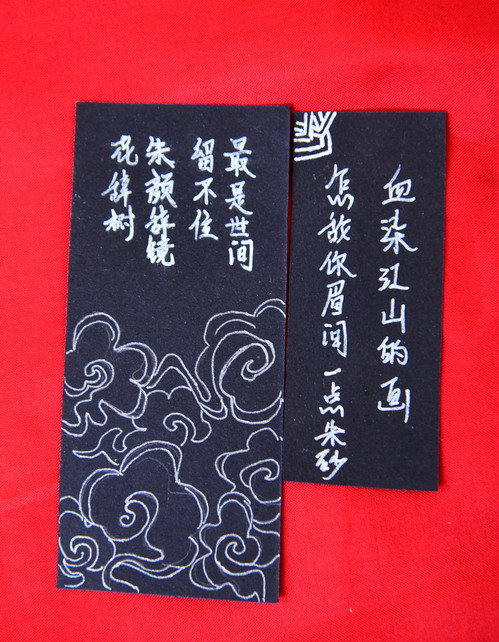 最是世间
留不住
朱颜辞镜
花辞树
血染江山的画
怎敌你眉间一点朱砂